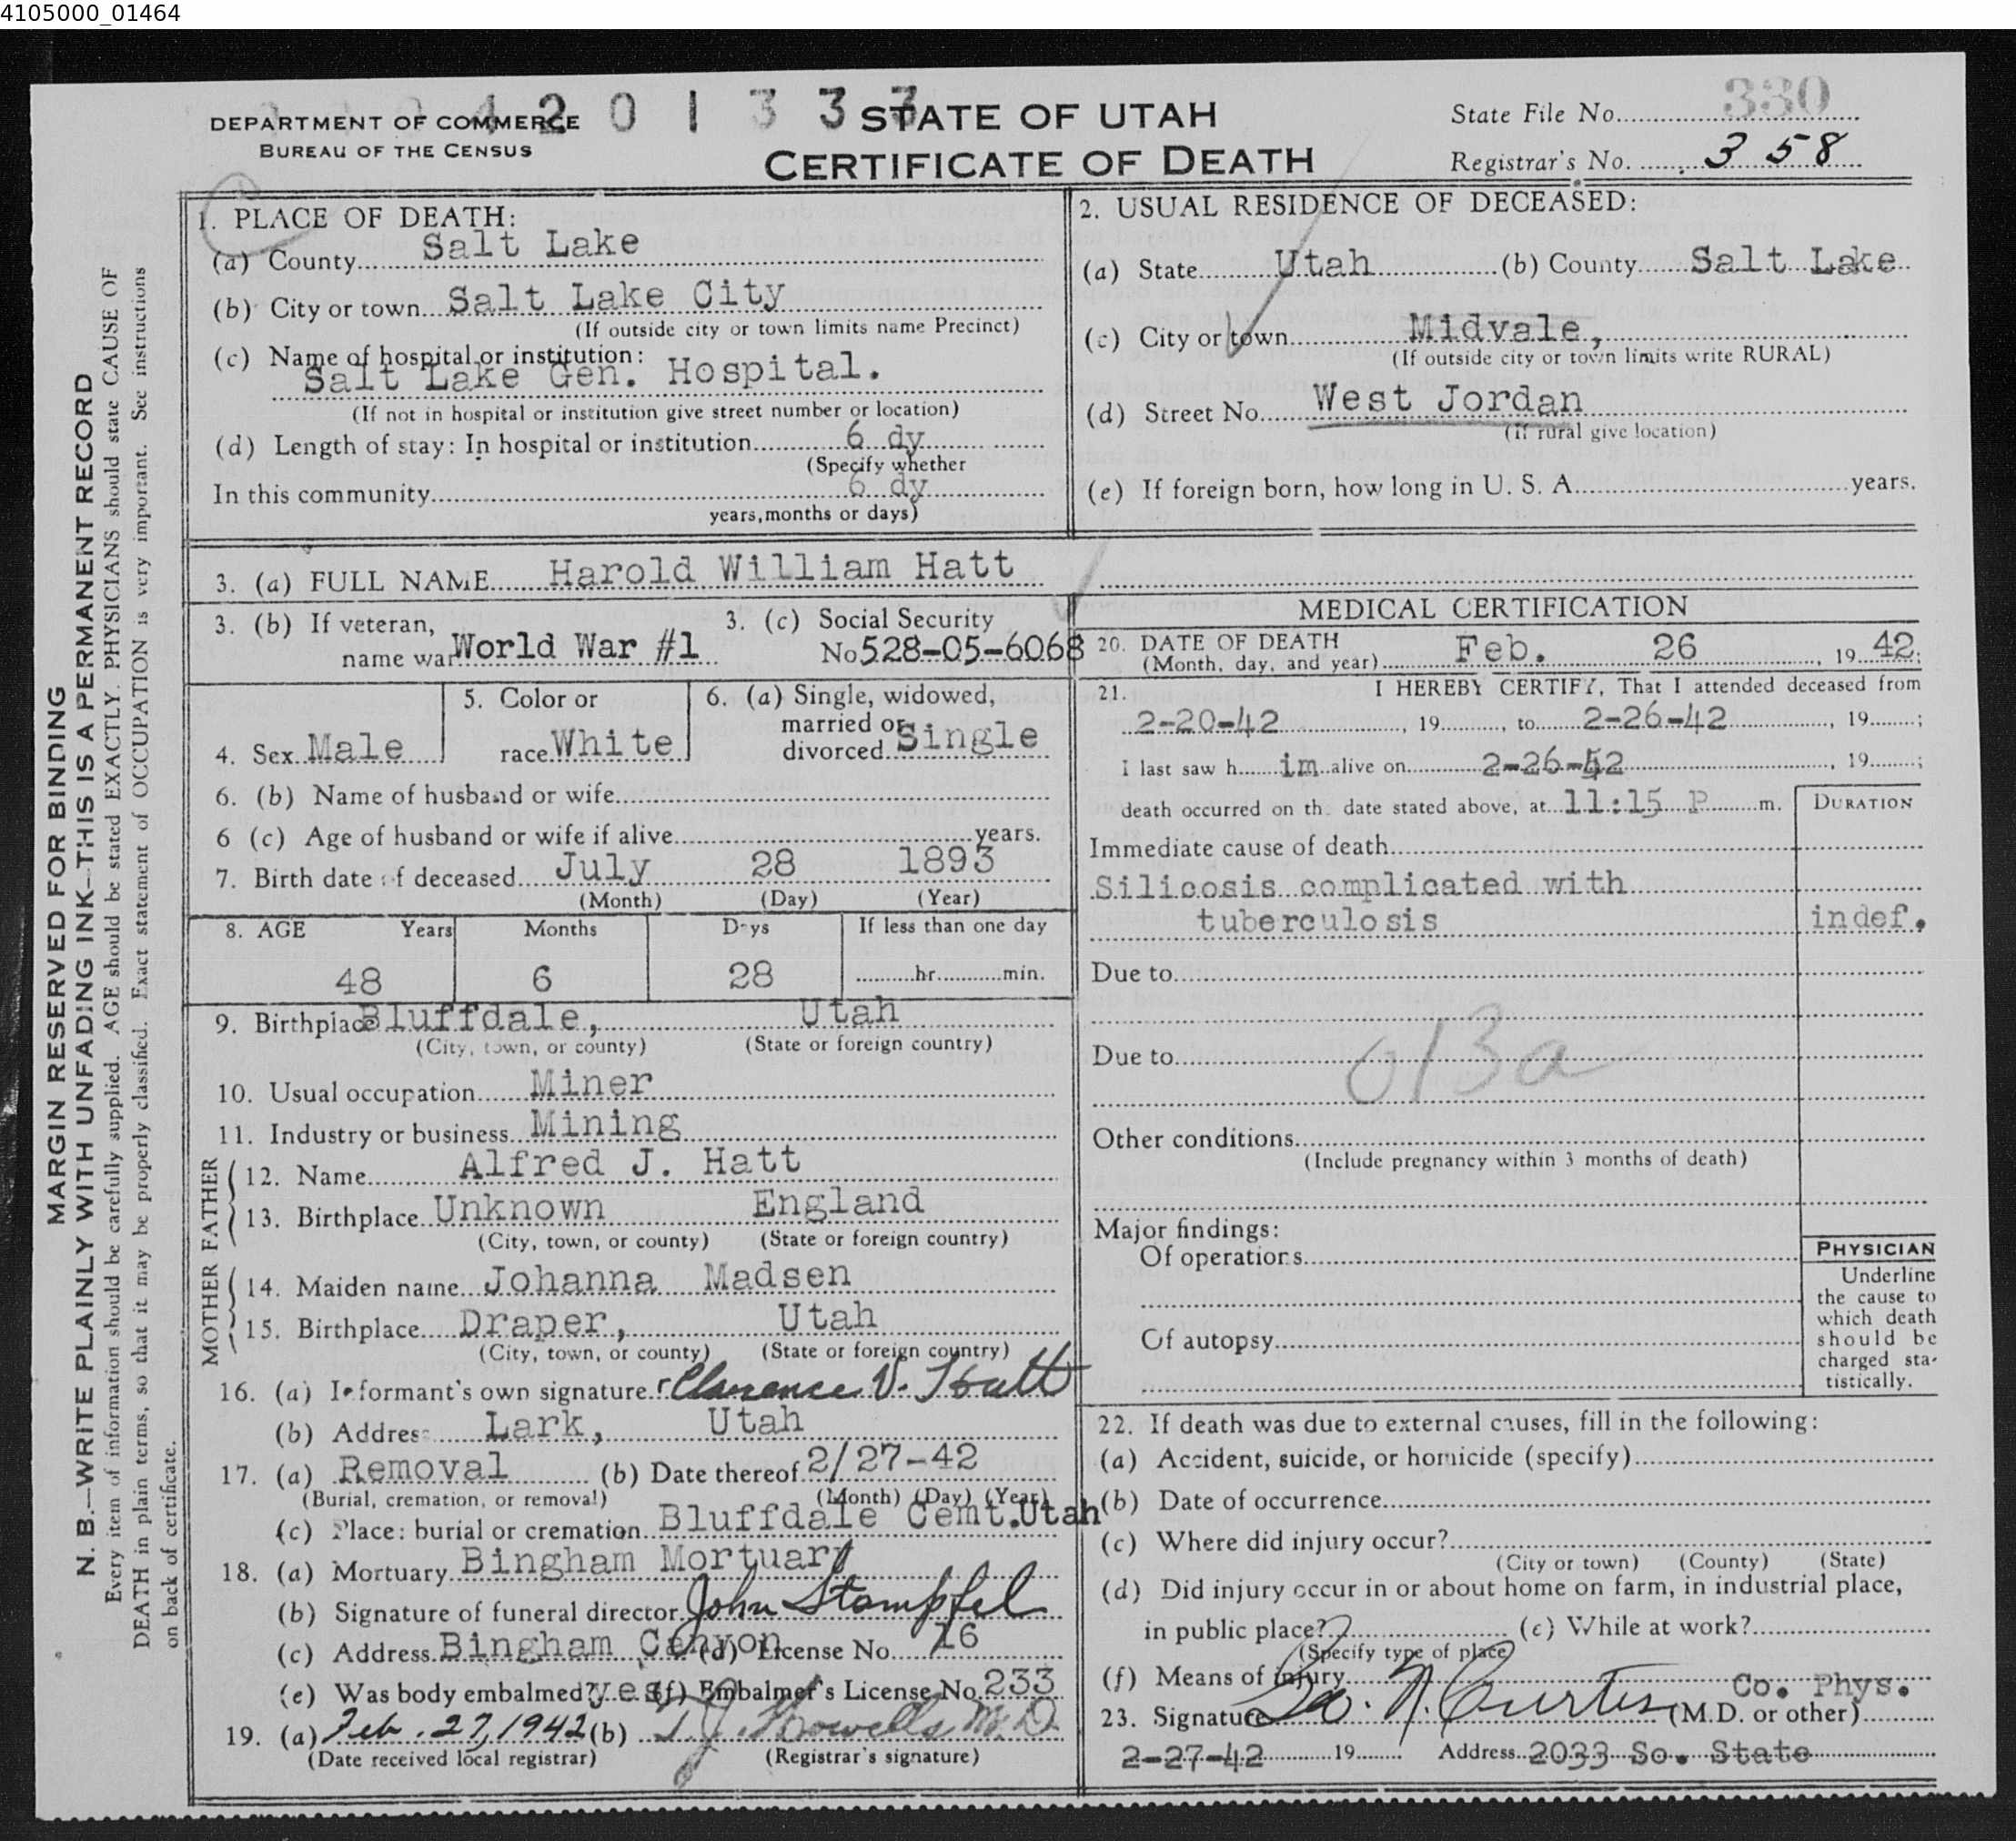 4105000_01464
DEPARTMENT OF COMMERCE
BUREAU OF THE CENSUS
4 2 0 1 3 3 3
STATE OF UTAH
CERTIFICATE OF DEATH
State File No. 330
Registrar's No. 358
MARGIN RESERVED FOR BINDING
N. B.—WRITE PLAINLY WITH UNFADING INK—THIS IS A PERMANENT RECORD
Every item of information should be carefully supplied. AGE should be stated EXACTLY. PHYSICIANS should state CAUSE OF
DEATH in plain terms, so that it may be properly classified. Exact statement of OCCUPATION is very important. See instructions
on back of certificate.
1. PLACE OF DEATH:
(a) County Salt Lake
(b) City or town Salt Lake City
(If outside city or town limits name Precinct)
(c) Name of hospital or institution:
Salt Lake Gen. Hospital.
(If not in hospital or institution give street number or location)
(d) Length of stay: In hospital or institution 6 dy
(Specify whether
In this community 6 dy
years, months or days)
2. USUAL RESIDENCE OF DECEASED:
(a) State Utah (b) County Salt Lake
(c) City or town Midvale,
(If outside city or town limits write RURAL)
(d) Street No. West Jordan
(If rural give location)
(e) If foreign born, how long in U. S. A. years.
3. (a) FULL NAME Harold William Hatt
3. (b) If veteran, name war World War #1
3. (c) Social Security No 528-05-6068
4. Sex Male
5. Color or race White
6. (a) Single, widowed, married or divorced Single
6. (b) Name of husband or wife
6 (c) Age of husband or wife if alive years.
7. Birth date of deceased July 28 1893
(Month) (Day) (Year)
8. AGE Years Months Days If less than one day
48 6 28 hr. min.
9. Birthplace Bluffdale, Utah
(City, town, or county) (State or foreign country)
10. Usual occupation Miner
11. Industry or business Mining
FATHER
12. Name Alfred J. Hatt
13. Birthplace Unknown England
(City, town, or county) (State or foreign country)
MOTHER
14. Maiden name Johanna Madsen
15. Birthplace Draper, Utah
(City, town, or county) (State or foreign country)
16. (a) Informant's own signature Clarence V. Hatt
(b) Address Lark, Utah
17. (a) Removal (b) Date thereof 2/27-42
(Burial, cremation, or removal) (Month) (Day) (Year)
(c) Place: burial or cremation Bluffdale Cemt. Utah
18. (a) Mortuary Bingham Mortuary
(b) Signature of funeral director John Stampfel
(c) Address Bingham Canyon (d) License No. 16
(e) Was body embalmed? yes (f) Embalmer's License No. 233
19. (a) Feb. 27, 1942 (b) T. J. Howells M.D.
(Date received local registrar) (Registrar's signature)
MEDICAL CERTIFICATION
20. DATE OF DEATH
(Month, day, and year) Feb. 26, 1942;
21. I HEREBY CERTIFY, That I attended deceased from
2-20-42, 19, to 2-26-42, 19;
I last saw him alive on 2-26-42, 19;
death occurred on the date stated above, at 11:15 P m.
DURATION
Immediate cause of death
Silicosis complicated with
tuberculosis indef.
Due to
013a
Due to
Other conditions
(Include pregnancy within 3 months of death)
Major findings:
Of operations
Of autopsy
PHYSICIAN
Underline
the cause to
which death
should be
charged sta-
tistically.
22. If death was due to external causes, fill in the following:
(a) Accident, suicide, or homicide (specify)
(b) Date of occurrence
(c) Where did injury occur?
(City or town) (County) (State)
(d) Did injury occur in or about home on farm, in industrial place,
in public place? (e) While at work?
(Specify type of place)
(f) Means of injury
23. Signature Leo. N. Curtis Co. Phys. (M.D. or other)
2-27-42 19 Address 2033 So. State